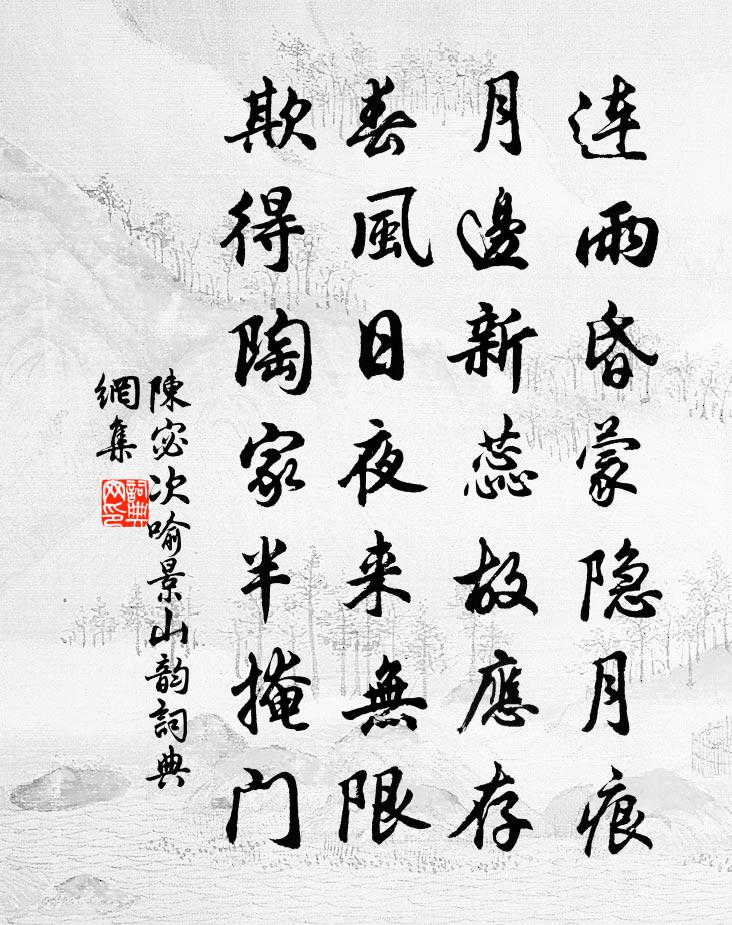 连雨昏蒙隐月痕
月邊新蕊故應存
春風日夜来無限
欺得陶家半掩门
陳宓次喻景山韵詞典
網集
詞典
网印